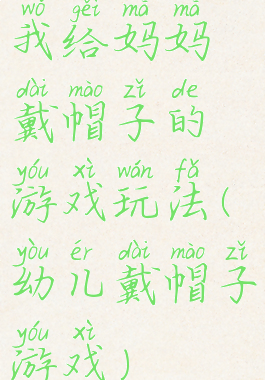 wǒ gěi mā mā
我给妈妈
dài mào zǐ de
戴帽子的
yóu xì wán fǎ
游戏玩法(
yòu ér dài mào zǐ
幼儿戴帽子
yóu xì
游戏)